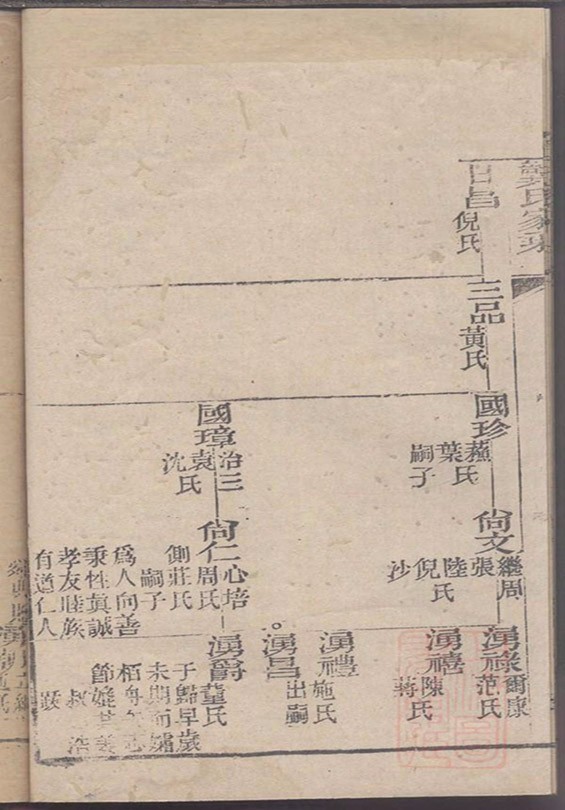 龔氏家乘
日昌
倪氏
三品
黃氏
國珍
蘓
葉氏
嗣子
尙文
繼周
張
陸
倪氏
沙
湧祿
爾康
范氏
湧禧
陳氏
蔣
湧禮
施氏
出嗣
湧昌
國璋
治三
袁
沈氏
尙仁
心培
周氏
側莊氏
嗣子
爲人向善
秉性眞誠
孝友睦族
有道仁人
湧爵
董氏
于歸早歲
未期而孀
栢舟
節媲
叔浩
跋